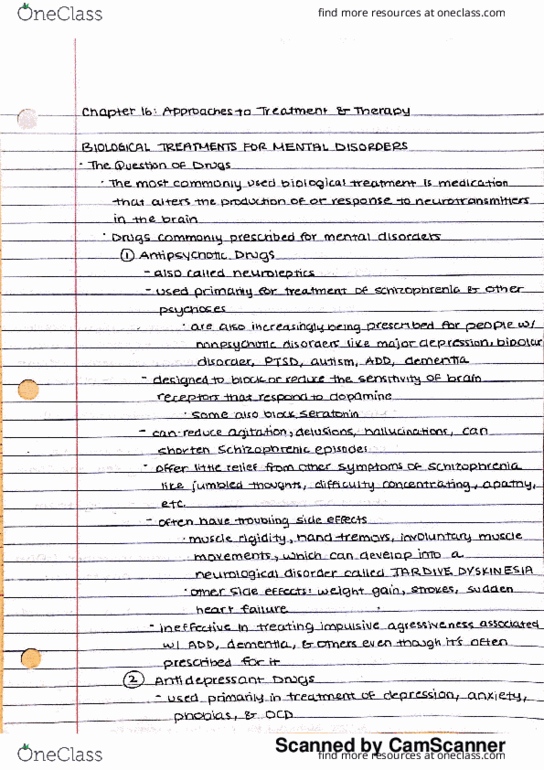 OneClass
find more resources at oneclass.com
Chapter 16: Approaches to Treatment & Therapy
BIOLOGICAL TREATMENTS FOR MENTAL DISORDERS
• The Question of Drugs
• The most commonly used biological treatment is medication
that alters the production of or response to neurotransmitters
in the brain
• Drugs commonly prescribed for mental disorders
① Antipsychotic Drugs
- also called neuroleptics
- used primarily for treatment of schizophrenia & other
psychoses
• are also increasingly being prescribed for people w/
nonpsychotic disorders like major depression, bipolar
disorder, PTSD, autism, ADD, dementia
- designed to block or reduce the sensitivity of brain
receptors that respond to dopamine
• some also block seratonin
- can reduce agitation, delusions, hallucinations, can
shorten schizophrenic episodes
• offer little relief from other symptoms of schizophrenia
like jumbled thoughts, difficulty concentrating, apathy,
etc.
- often have troubling side effects
• muscle rigidity, hand tremors, involuntary muscle
movements, which can develop into a
neurological disorder called TARDIVE DYSKINESIA
• other side effects: weight gain, strokes, sudden
heart failure
- ineffective in treating impulsive agressiveness associated
w/ ADD, dementia, & others even though it's often
prescribed for it
② Antidepressant Drugs
- used primarily in treatment of depression, anxiety,
phobias, & OCD
Scanned by CamScanner
OneClass
find more resources at oneclass.com